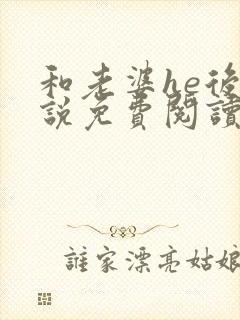 和老婆he後
說免費閱讀
誰家漂亮姑娘